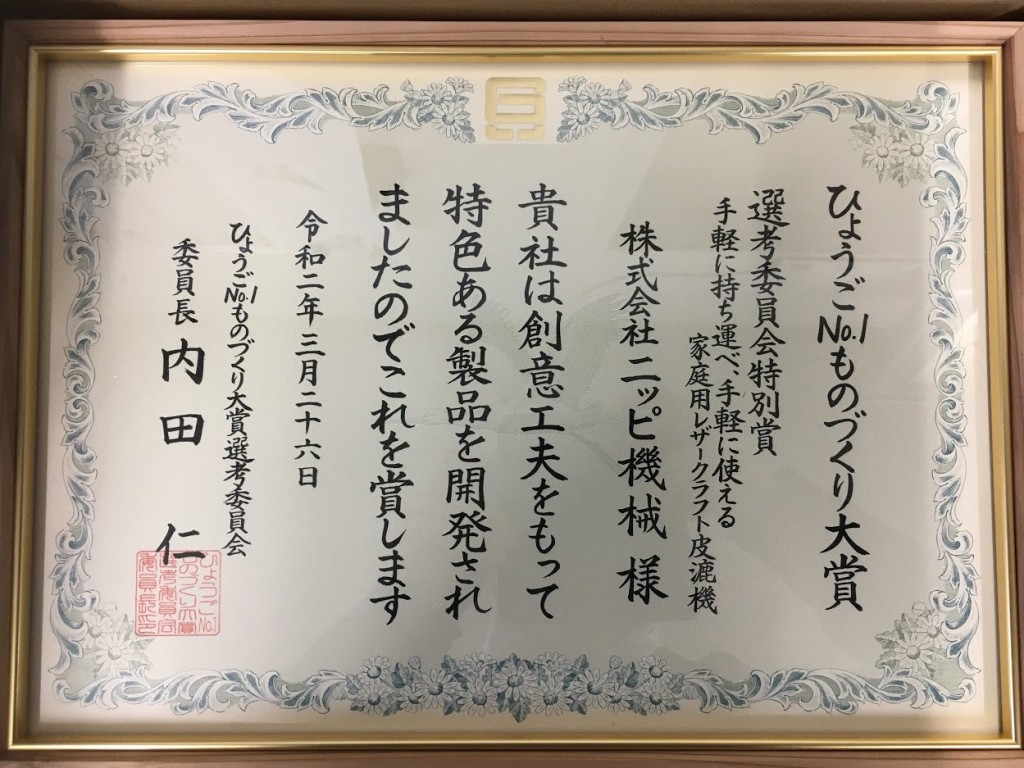 ひょうごNo.1ものづくり大賞
選考委員会特別賞
手軽に持ち運べ、手軽に使える
家庭用レザークラフト皮漉機
株式会社ニッピ機械 様
貴社は創意工夫をもって
特色ある製品を開発され
ましたのでこれを賞します
令和二年三月二十六日
ひょうごNo.1ものづくり大賞選考委員会
委員長 内田 仁
ひょうごNo.1
ものづくり大賞
選考委員会
委員長印